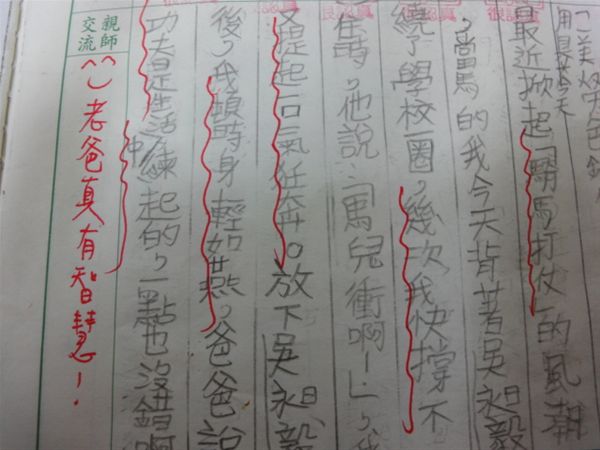 最近掀起「騎馬打仗」的風潮
，當馬的我今天背著吳昶毅
繞了學校一圈，幾次我快撐不
住時，他說：「馬兒衝啊！」，我
又提起一口氣狂奔。放下吳昶毅
後，我頓時身輕如燕，爸爸說
功夫是生活中練起的，一點也沒錯啊
親師
交流
^^) 老爸真有智慧！